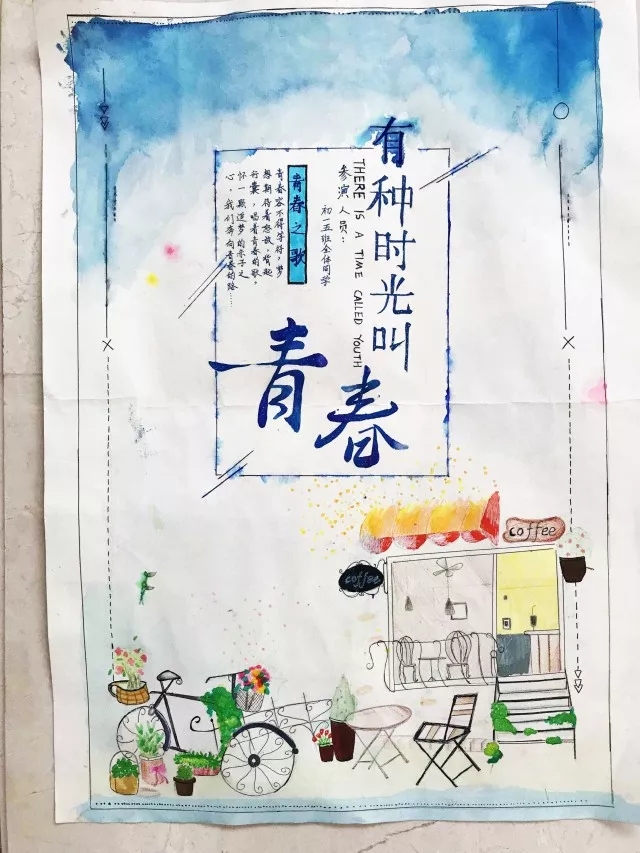 有种时光叫
青春
THERE IS A TIME CALLED YOUTH
参演人员:
初一五班全体同学
青春之歌
青春容不得等待,梦
想期待着怒放,背起
行囊,唱着青春的歌,
怀一颗追梦的赤子之
心,我们奔向青春的路……
coffee
coffee